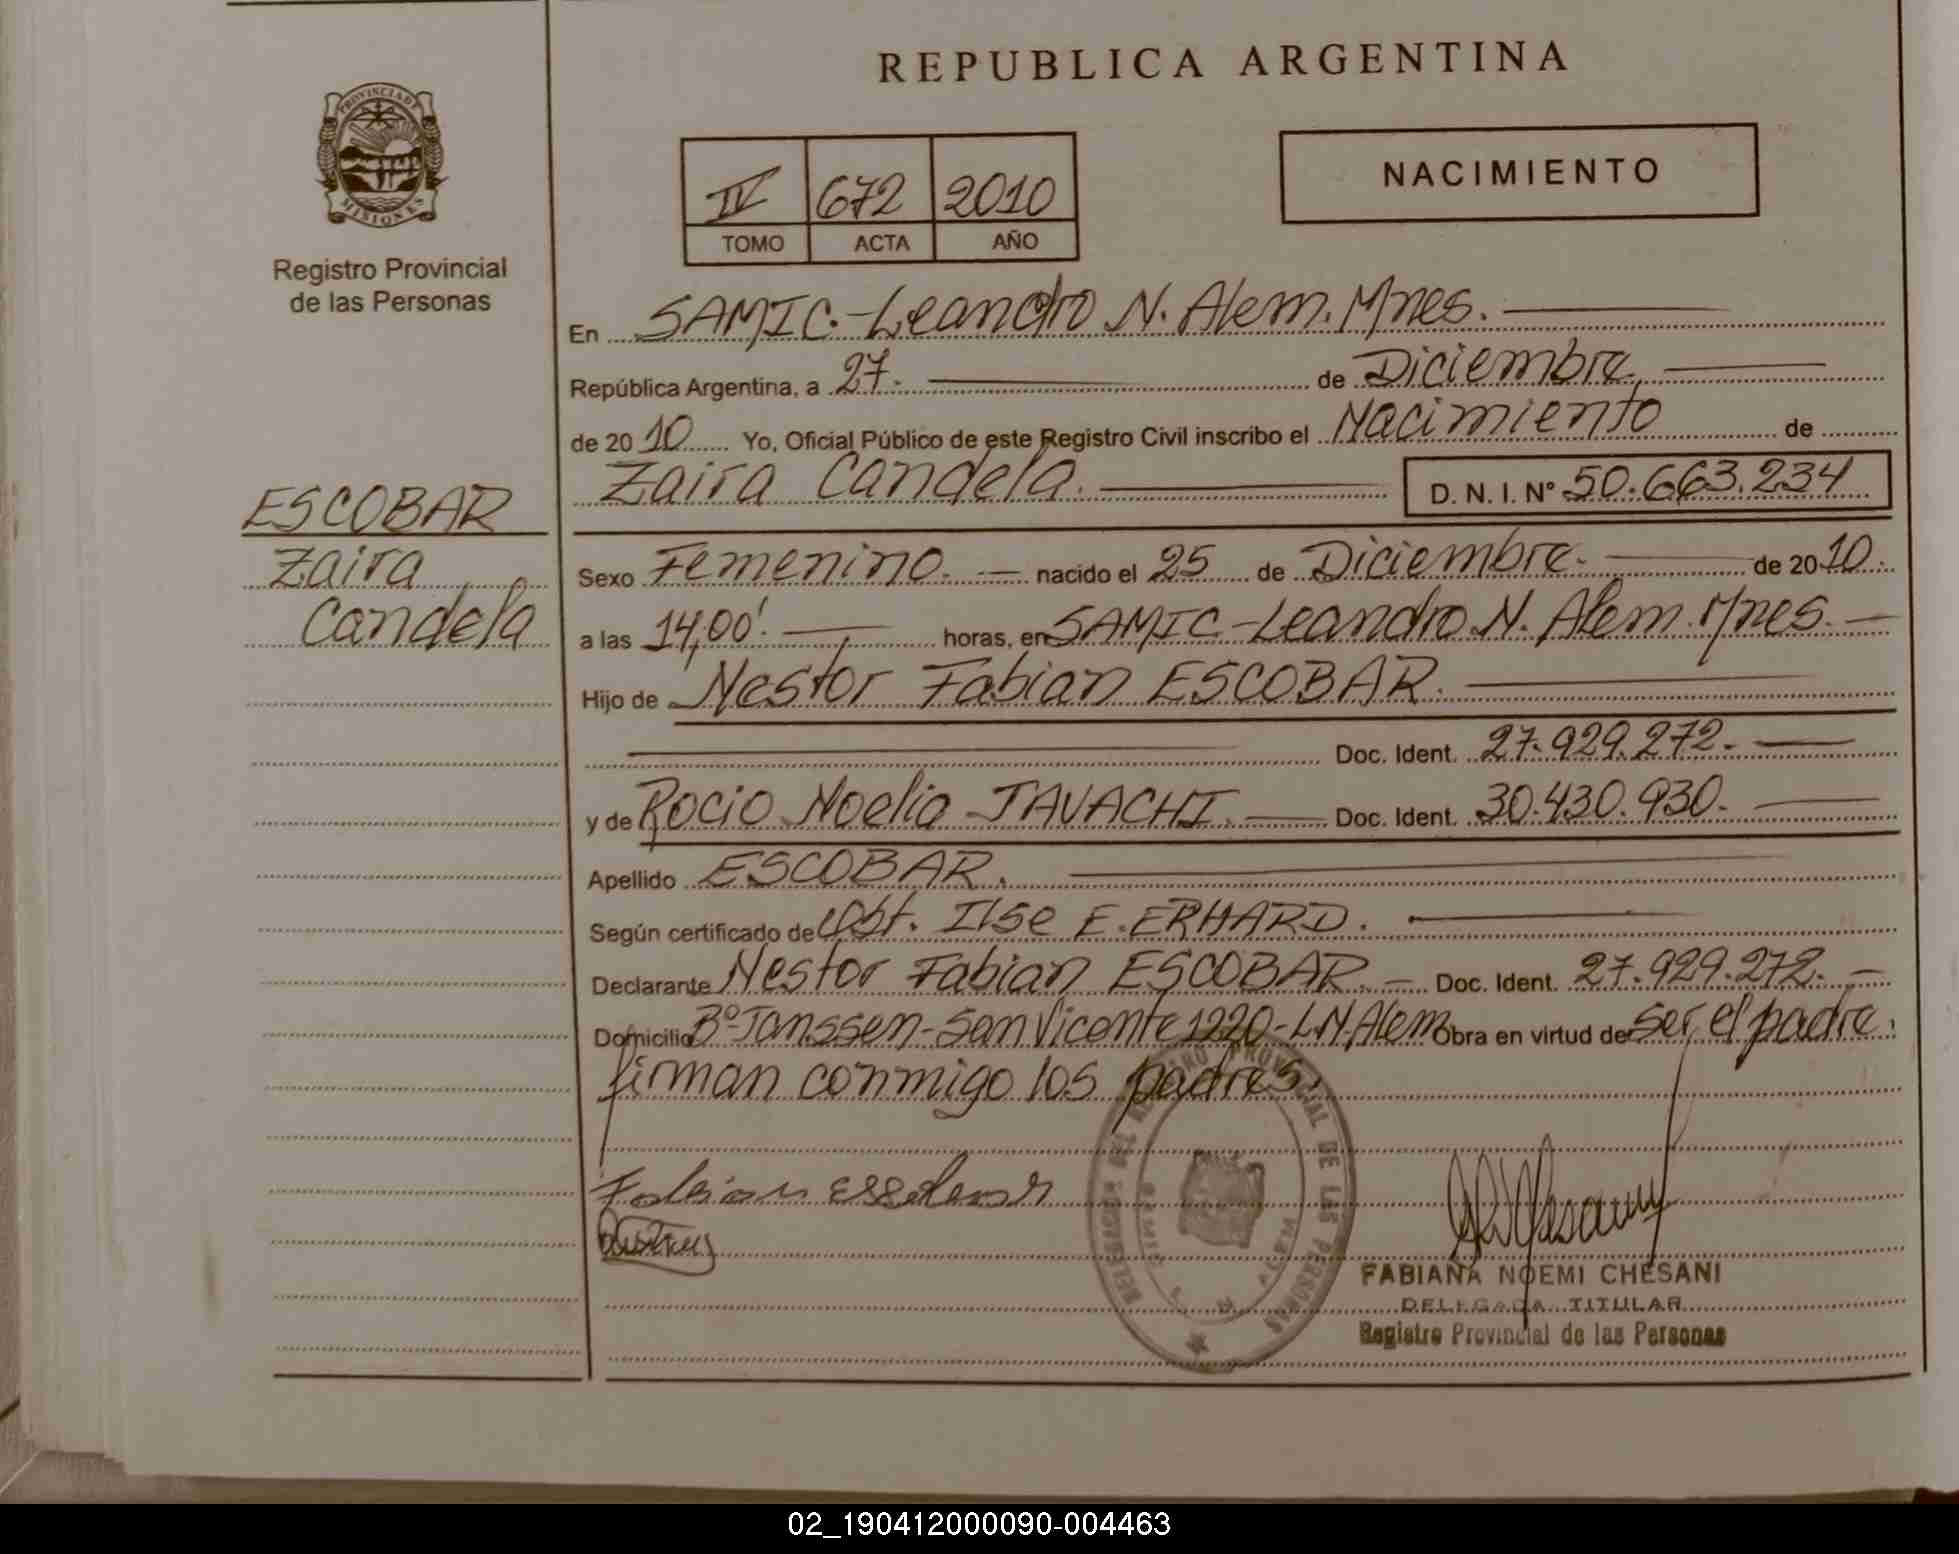 REPUBLICA ARGENTINA
PROVINCIA DE
MISIONES
Registro Provincial
de las Personas
IV 672 2010
TOMO ACTA AÑO
NACIMIENTO
En SAMIC.-Leandro N. Alem. Mnes.
República Argentina, a 27. de Diciembre
de 2010 Yo, Oficial Público de este Registro Civil inscribo el Nacimiento de
Zaira Candela. D. N. I. Nº 50.663.234
ESCOBAR
Zaira
Candela
Sexo Femenino. nacido el 25 de Diciembre. de 2010.
a las 14,00'. horas, en SAMIC-Leandro N. Alem. Mnes.
Hijo de Nestor Fabian ESCOBAR.
Doc. Ident. 27.929.272.
y de Rocio Noelia TAVACHI. Doc. Ident. 30.430.930.
Apellido ESCOBAR.
Según certificado de Obst. Ilse E. ERHARD.
Declarante Nestor Fabian ESCOBAR. Doc. Ident. 27.929.272.
Domicilio Bº Janssen-San Vicente 1220-L.N.Alem Obra en virtud de ser el padre.
firman conmigo los padres.
Fabian escobar
FABIANA NOEMI CHESANI
DELEGADA TITULAR
Registro Provincial de las Personas
02_190412000090-004463